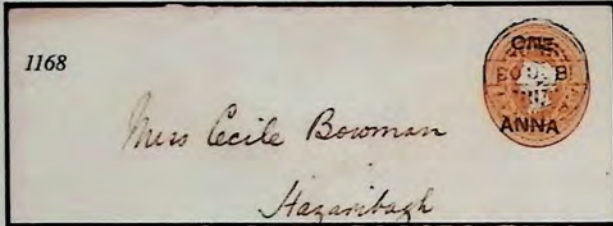 1168
ONE
ANNA
Miss Cecile Bowman
Hazaribagh